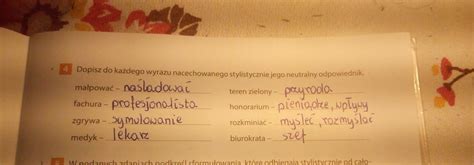 4 Dopisz do każdego wyrazu nacechowanego stylistycznie jego neutralny odpowiednik.
małpować – naśladować teren zielony – przyroda
fachura – profesjonalista honorarium – pieniądze, wpływy
zgrywa – symulowanie rozkminiać – myśleć, rozmyślać
medyk – lekarz biurokrata – szef
W podanych zdaniach podkreśl sformułowania, które odbiegają stylistycznie od cało-